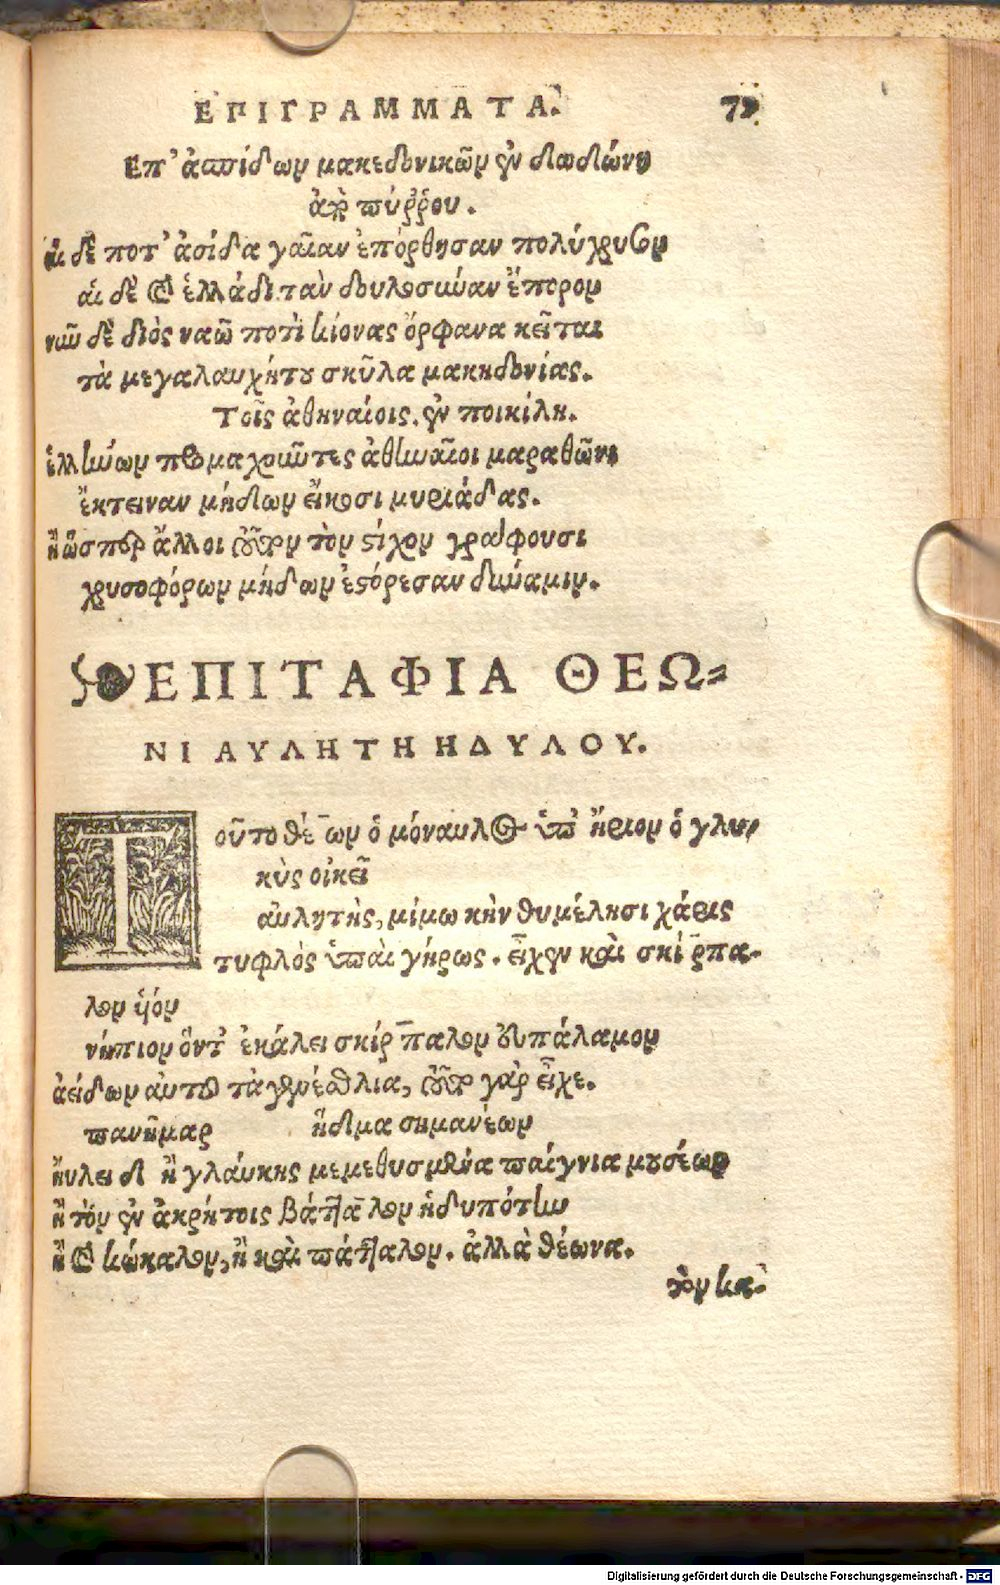 ΕΠΙΓΡΑΜΜΑΤΑ. 79
Επ' ἀσπίδων μακεδονικῶν ἐν δωδώνῃ
ἀπὸ πύῤῥου.
αἵ δέ ποτ' ἀσίδα γαῖαν ἐπόρθησαν πολύχρυσον
αἱ δὲ καὶ ἑλλάδι τὰν δουλοσύναν ἔπορον
νῦν δὲ διὸς ναῶ ποτὶ κίονας ὄρφανα κεῖται
τὰ μεγαλαυχήτου σκῦλα μακηδονίας.
Τοῖς ἀθηναίοις. ἐν ποικίλη.
ἑλλήνων προμαχοῦντες ἀθηναῖοι μαραθῶνι
ἔκτειναν μήδων εἴκοσι μυριάδας.
ἢ ὥσπερ ἄλλοι οὕτω τὸν στίχον γράφουσι
χρυσοφόρων μήδων ἐστόρεσαν δύναμιν.
ΕΠΙΤΑΦΙΑ ΘΕΩ-
ΝΙ ΑΥΛΗΤΗ ΗΔΥΛΟΥ.
Τοῦτο θέων ὁ μόναυλος ὑπ' ἤριον ὁ γλυ-
κὺς οἰκεῖ
αὐλητὴς, μίμω κὴν θυμέλησι χάρις
τυφλὸς ὑπαὶ γήρως. εἶχεν καὶ σκίρπα-
λον υἱόν
νήπιον ὄντ' ἐκάλει σκίρπαλον εὐπάλαμον
ἀείδων αὐτοῦ τὰ γενέθλια, τοῦτο γὰρ εἶχε.
πανῆμαρ ἥδιμα σημανέων
ηὔλει δὴ γλάυκης μεμεθυσμένα παίγνια μουσέων
ἢ τὸν ἐν ἀκρήτοις βάτταλον ἡδυπότην
ἢ καὶ κώκαλον, ἢ καὶ πάγκαλον. ἀλλὰ θέωνα.
τὸν κα-
Digitalisierung gefördert durch die Deutsche Forschungsgemeinschaft - DFG